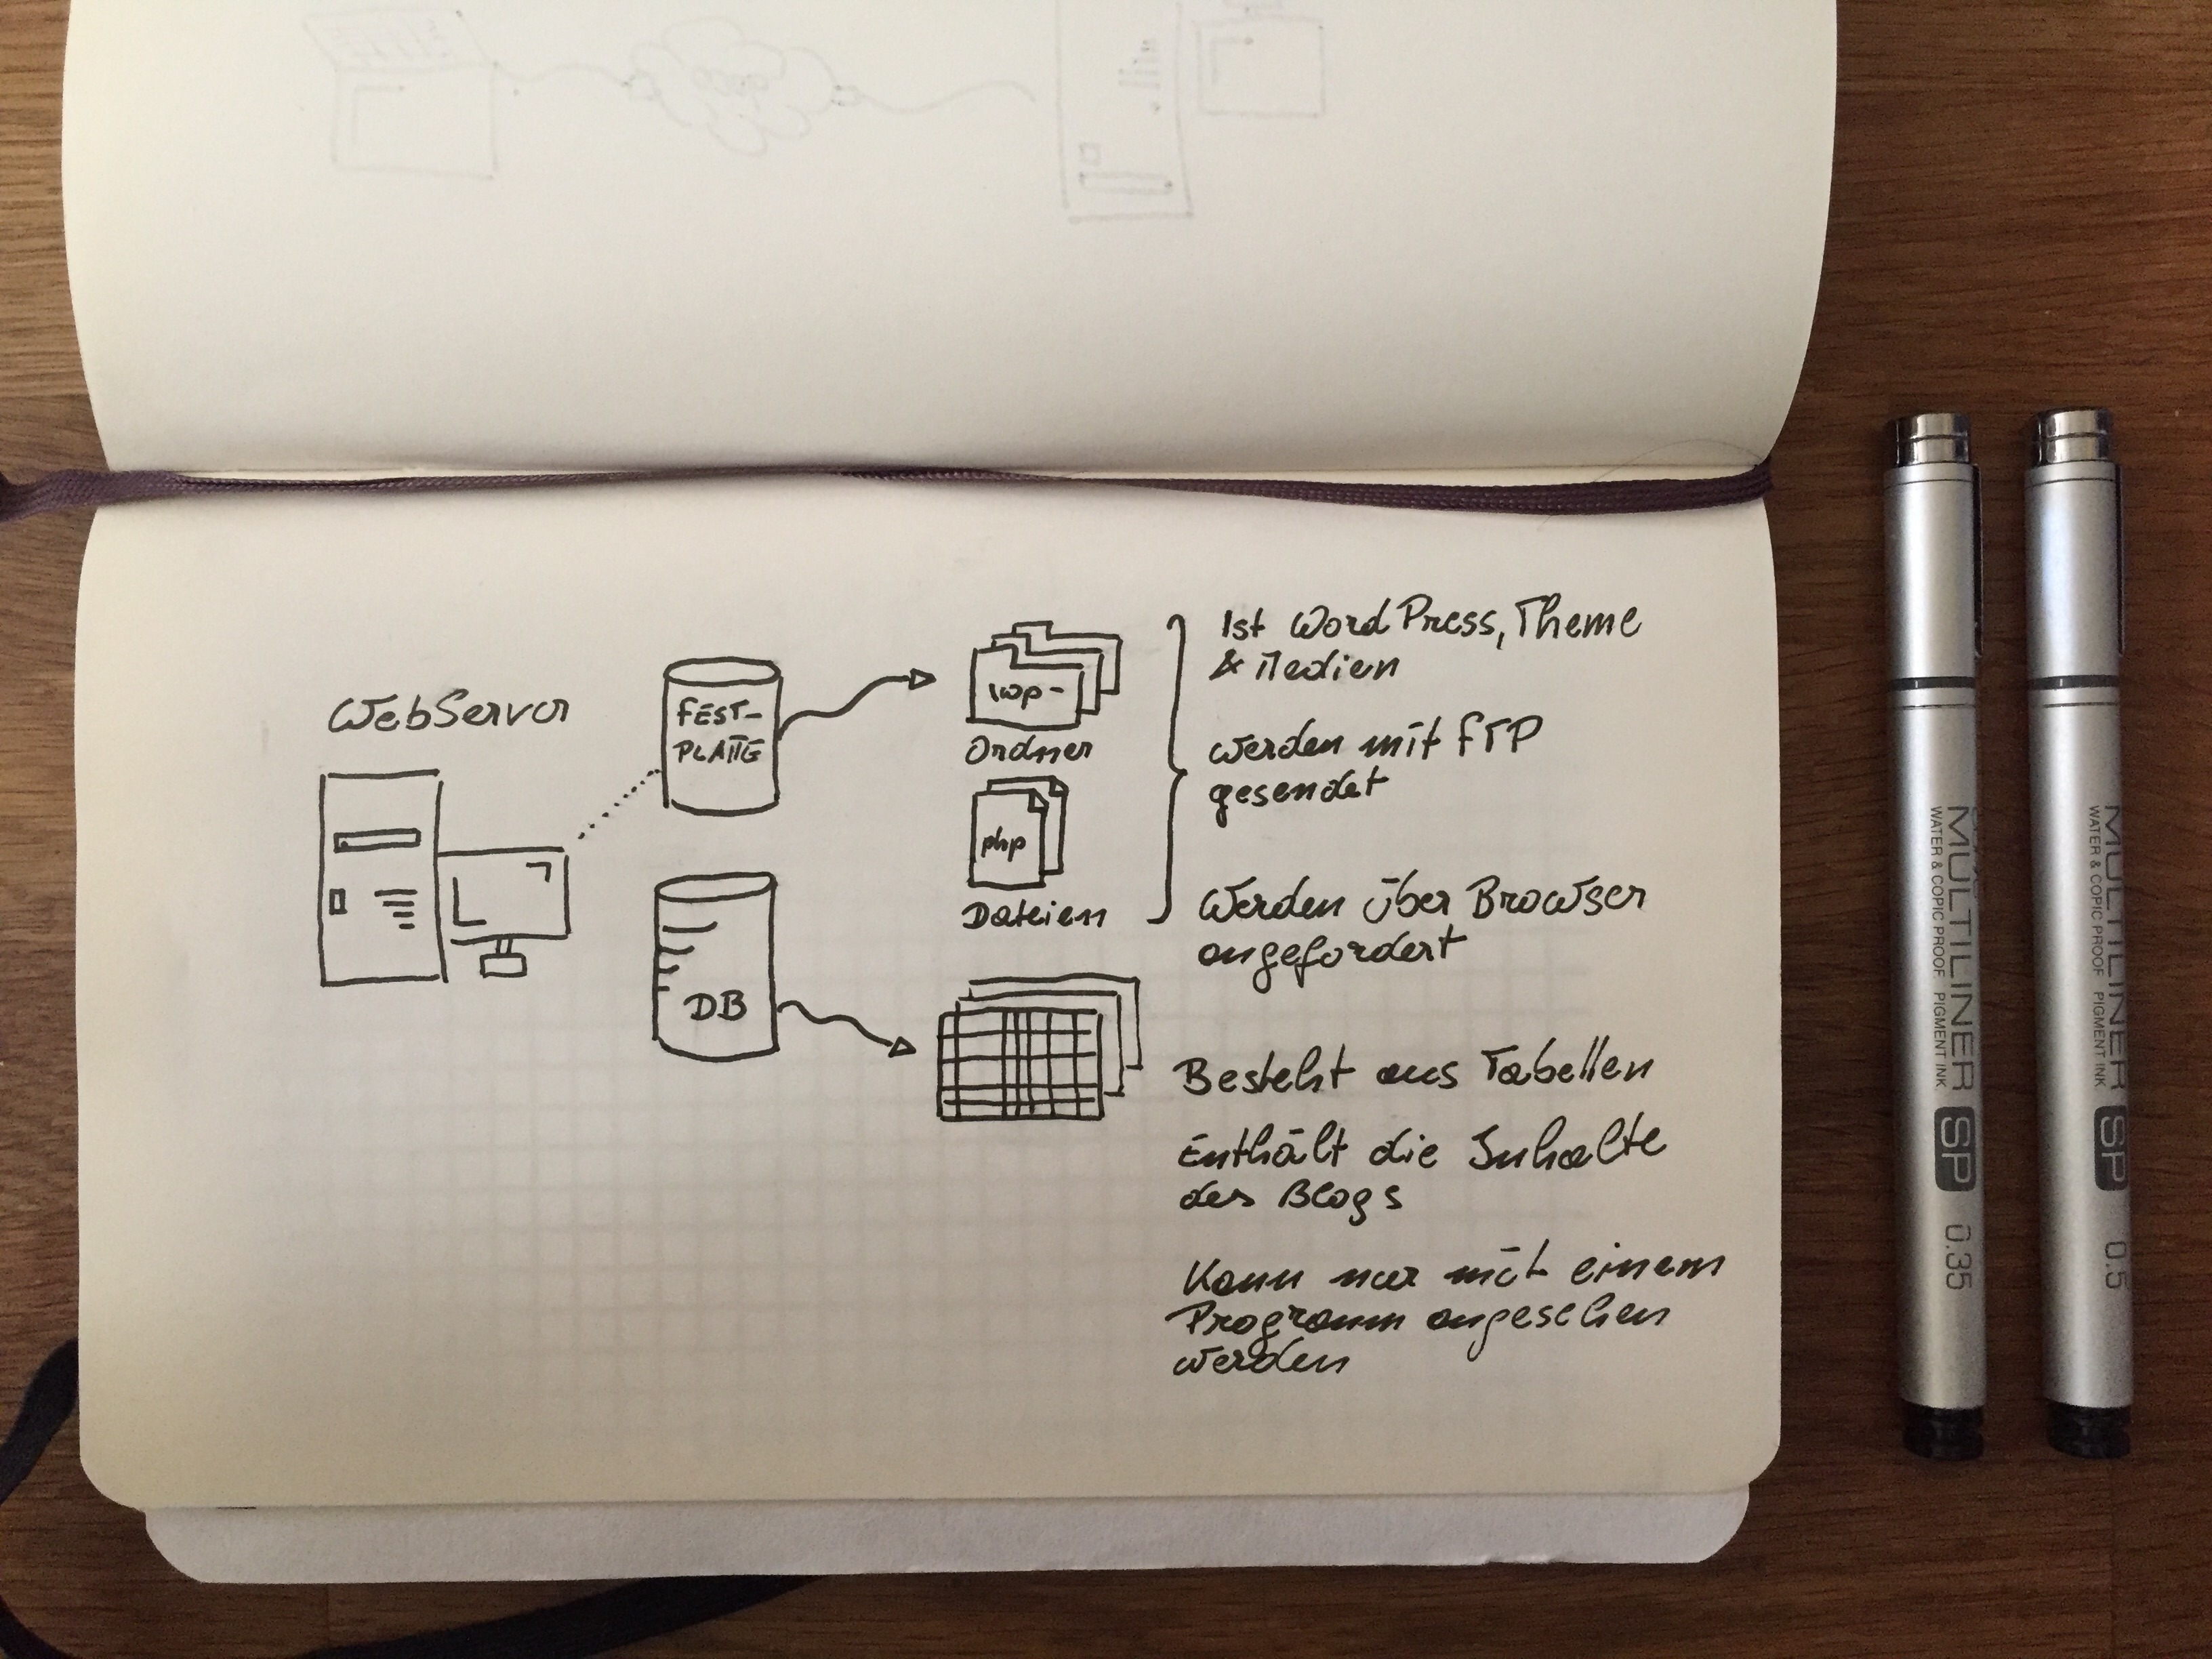 WebServer
FEST-
PLATTE
DB
wp-
Ordner
php
Dateien
Ist WordPress, Theme
& Medien
werden mit FTP
gesendet
Werden über Browser
angefordert
Besteht aus Tabellen
Enthält die Inhalte
des Blogs
Kann nur mit einem
Programm angesehen
werden
MULTILINER SP 0.35
WATER & COPIC PROOF PIGMENT INK
MULTILINER SP 0.5
WATER & COPIC PROOF PIGMENT INK